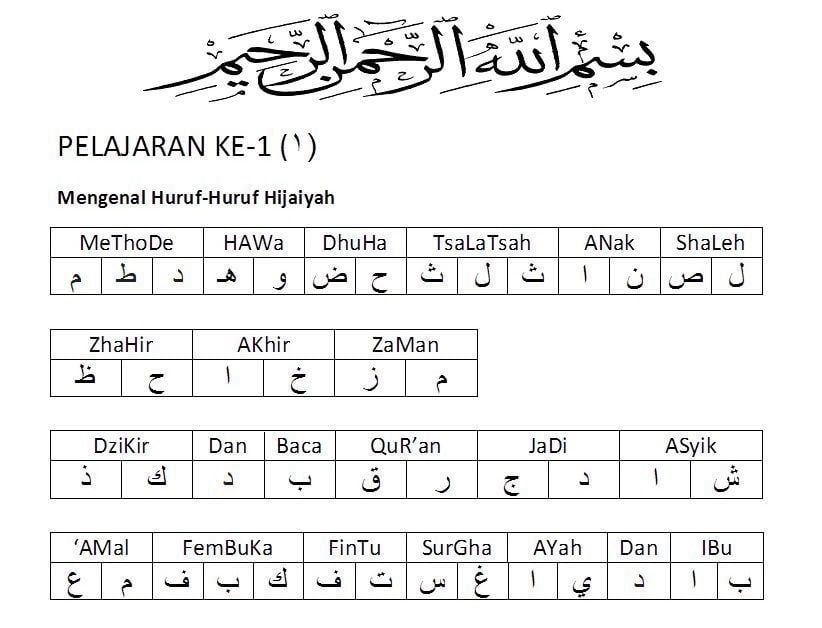 بِسْمِ اللَّهِ الرَّحْمَٰنِ الرَّحِيمِ
PELAJARAN KE-1 (١)
Mengenal Huruf-Huruf Hijaiyah
MeThoDe HAWa DhuHa TsaLaTsah ANak ShaLeh
م ط د هـ و ض ح ث ل ث ا ن ص ل
ZhaHir AKhir ZaMan
ظ ح ا خ ز م
DziKir Dan Baca QuR’an JaDi ASyik
ذ ك د ب ق ر ج د ا ش
‘AMal FemBuKa FinTu SurGha AYah Dan IBu
ع م ف ب ك ف ت س غ ا ي د ا ب